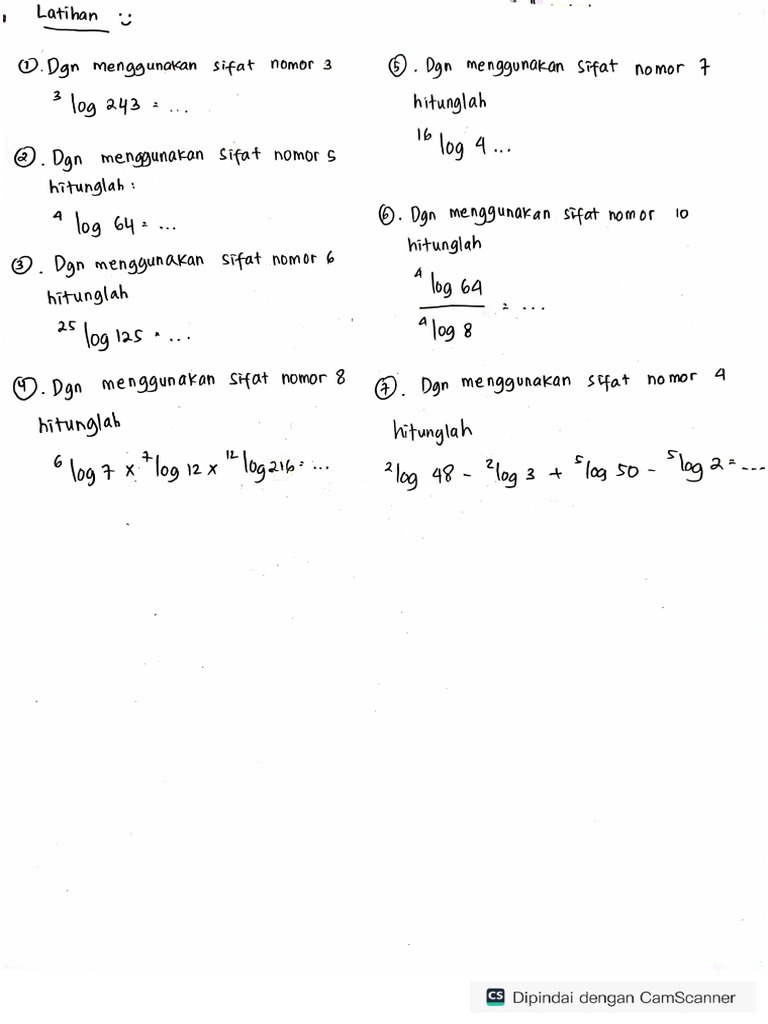 Latihan :)
①. Dgn menggunakan sifat nomor 3
³log 243 = ...
②. Dgn menggunakan sifat nomor 5
hitunglah :
⁴log 64 = ...
③. Dgn menggunakan sifat nomor 6
hitunglah
²⁵log 125 = ...
④. Dgn menggunakan sifat nomor 8
hitunglah
⁶log 7 x ⁷log 12 x ¹²log 216 = ...
⑤. Dgn menggunakan sifat nomor 7
hitunglah
¹⁶log 4 ...
⑥. Dgn menggunakan sifat nomor 10
hitunglah
⁴log 64
⁴log 8 = ...
⑦. Dgn menggunakan sifat nomor 4
hitunglah
²log 48 - ²log 3 + ⁵log 50 - ⁵log 2 = ...
CS Dipindai dengan CamScanner